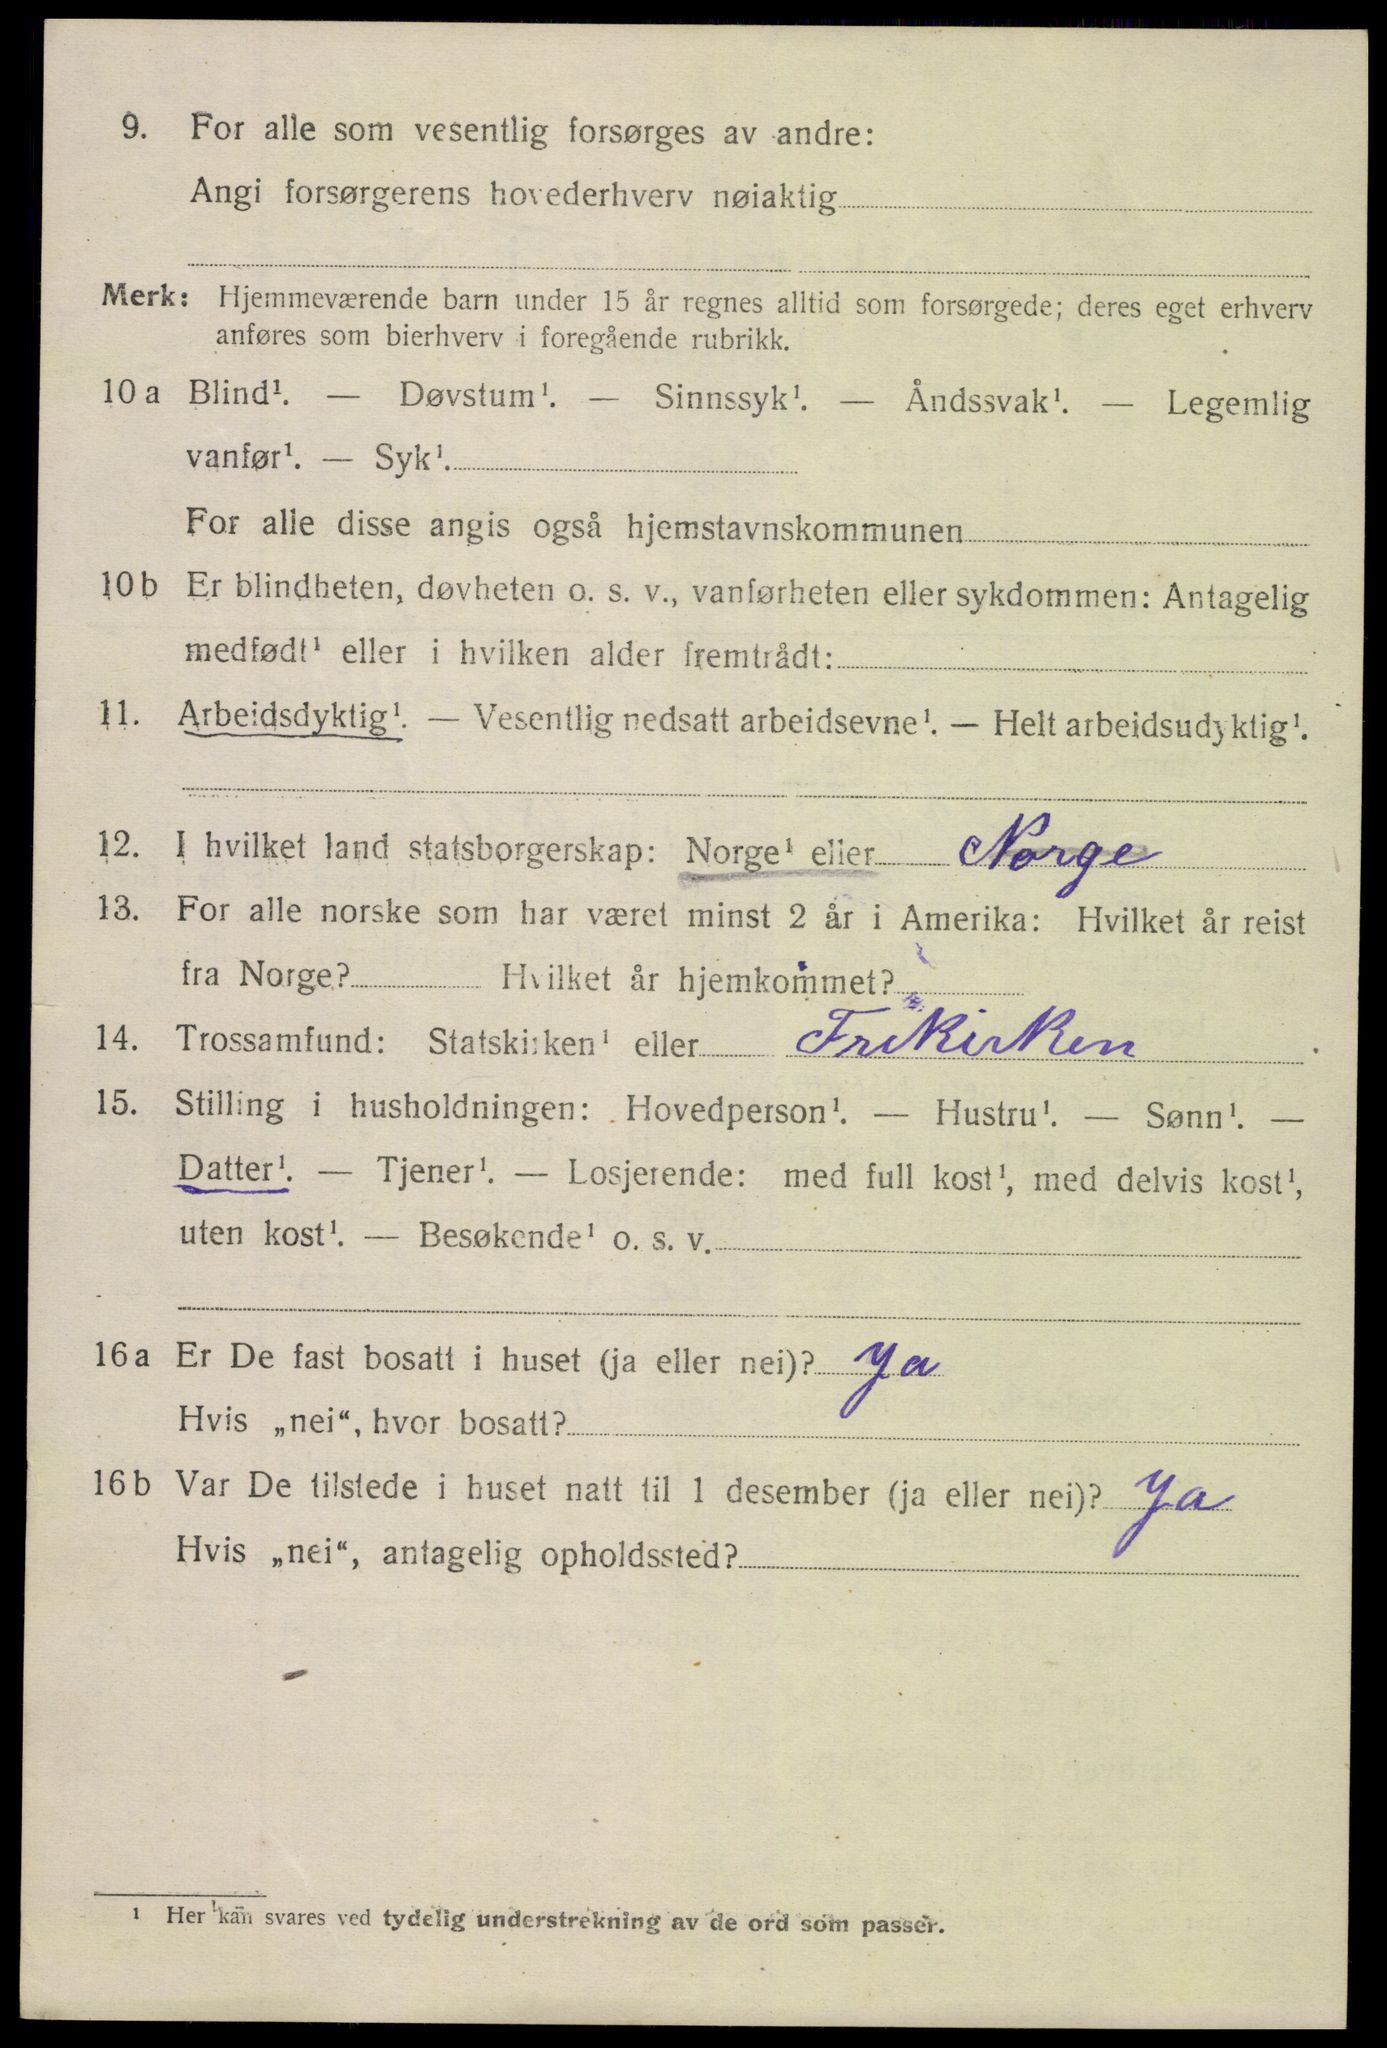 9. For alle som vesentlig forsørges av andre:
Angi forsørgerens hovederhverv nøiaktig
Merk: Hjemmeværende barn under 15 år regnes alltid som forsørgede; deres eget erhverv
anføres som bierhverv i foregående rubrikk.
10 a Blind¹. — Døvstum¹. — Sinnssyk¹. — Åndssvak¹. — Legemlig
vanfør¹. — Syk¹.
For alle disse angis også hjemstavnskommunen
10 b Er blindheten, døvheten o. s. v., vanførheten eller sykdommen: Antagelig
medfødt¹ eller i hvilken alder fremtrådt:
11. Arbeidsdyktig¹. — Vesentlig nedsatt arbeidsevne¹. — Helt arbeidsudyktig¹.
12. I hvilket land statsborgerskap: Norge¹ eller Norge
13. For alle norske som har været minst 2 år i Amerika: Hvilket år reist
fra Norge? Hvilket år hjemkommet?
14. Trossamfund: Statskirken¹ eller Frikirken
15. Stilling i husholdningen: Hovedperson¹. — Hustru¹. — Sønn¹. —
Datter¹. — Tjener¹. — Losjerende: med full kost¹, med delvis kost¹,
uten kost¹. — Besøkende¹ o. s. v.
16 a Er De fast bosatt i huset (ja eller nei)? Ja
Hvis „nei“, hvor bosatt?
16 b Var De tilstede i huset natt til 1 desember (ja eller nei)? Ja
Hvis „nei“, antagelig opholdssted?
¹ Her kan svares ved tydelig understrekning av de ord som passer.